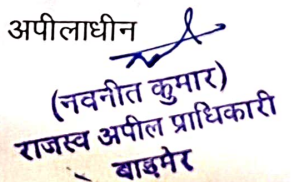 अपीलाधीन
(नवनीत कुमार)
राजस्व अपील प्राधिकारी
बाड़मेर